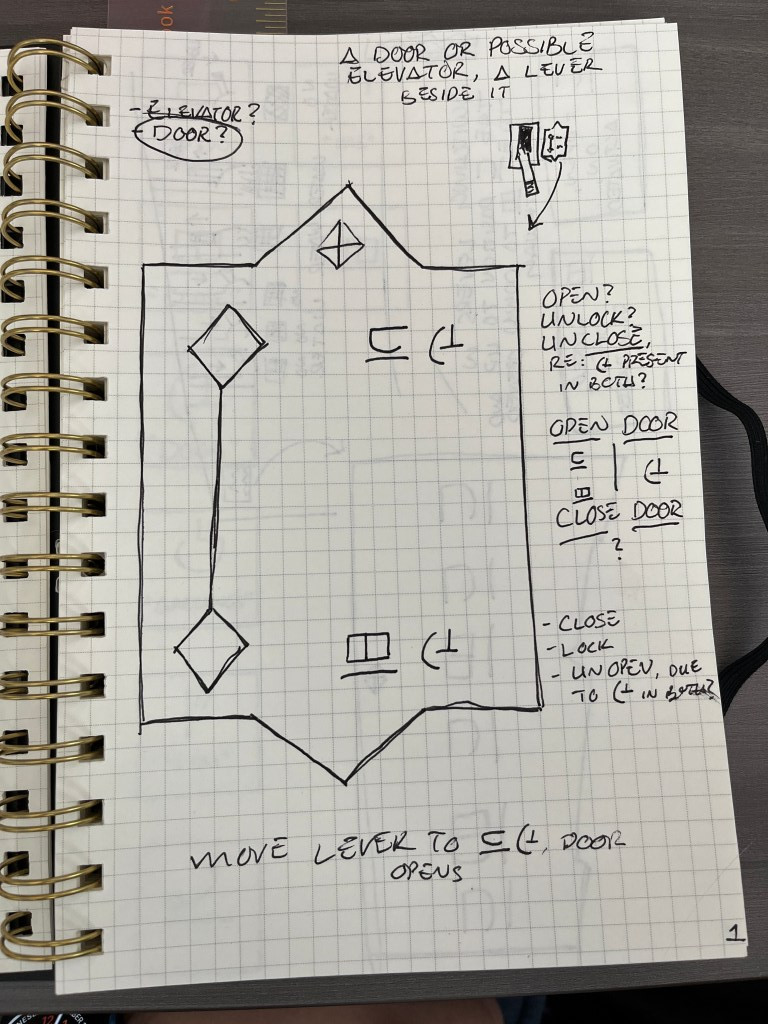 A DOOR OR POSSIBLE
ELEVATOR, A LEVER
BESIDE IT
- ELEVATOR?
- DOOR?
OPEN?
UNLOCK?
UNCLOSE,
RE: PRESENT
IN BOTH?
OPEN DOOR
CLOSE DOOR
?
- CLOSE
- LOCK
- UNOPEN, DUE
TO IN BOTH?
MOVE LEVER TO , DOOR
OPENS
1